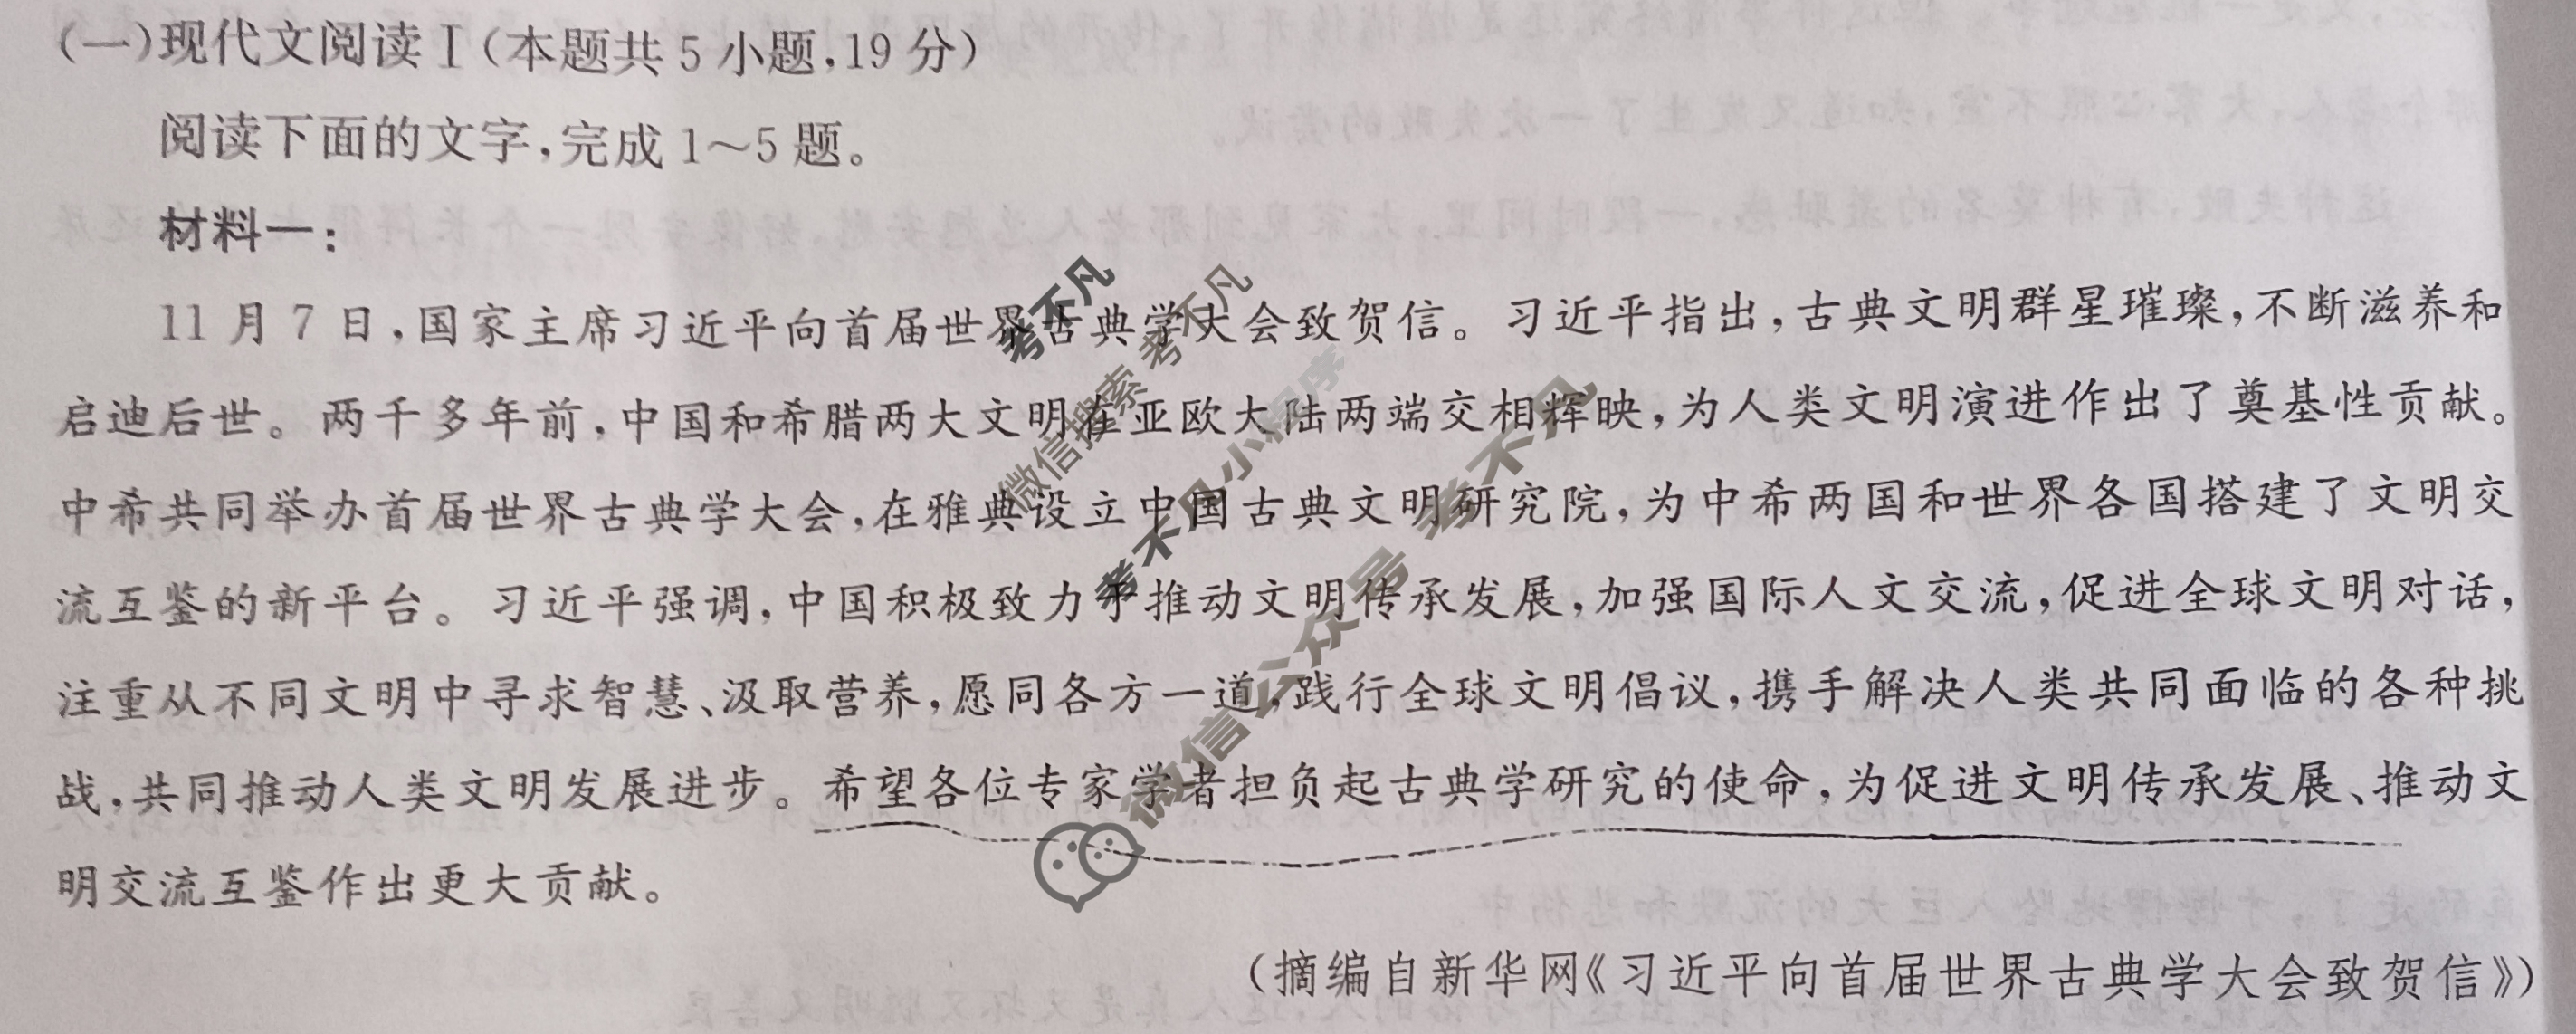 (一)现代文阅读Ⅰ(本题共5小题,19分)
阅读下面的文字,完成1~5题。
材料一:
11月7日,国家主席习近平向首届世界古典学大会致贺信。习近平指出,古典文明群星璀璨,不断滋养和
启迪后世。两千多年前,中国和希腊两大文明在亚欧大陆两端交相辉映,为人类文明演进作出了奠基性贡献。
中希共同举办首届世界古典学大会,在雅典设立中国古典文明研究院,为中希两国和世界各国搭建了文明交
流互鉴的新平台。习近平强调,中国积极致力于推动文明传承发展,加强国际人文交流,促进全球文明对话,
注重从不同文明中寻求智慧、汲取营养,愿同各方一道,践行全球文明倡议,携手解决人类共同面临的各种挑
战,共同推动人类文明发展进步。希望各位专家学者担负起古典学研究的使命,为促进文明传承发展、推动文
明交流互鉴作出更大贡献。
(摘编自新华网《习近平向首届世界古典学大会致贺信》)
考不凡
微信搜索 考不凡
考不凡小程序
微信公众号 考不凡